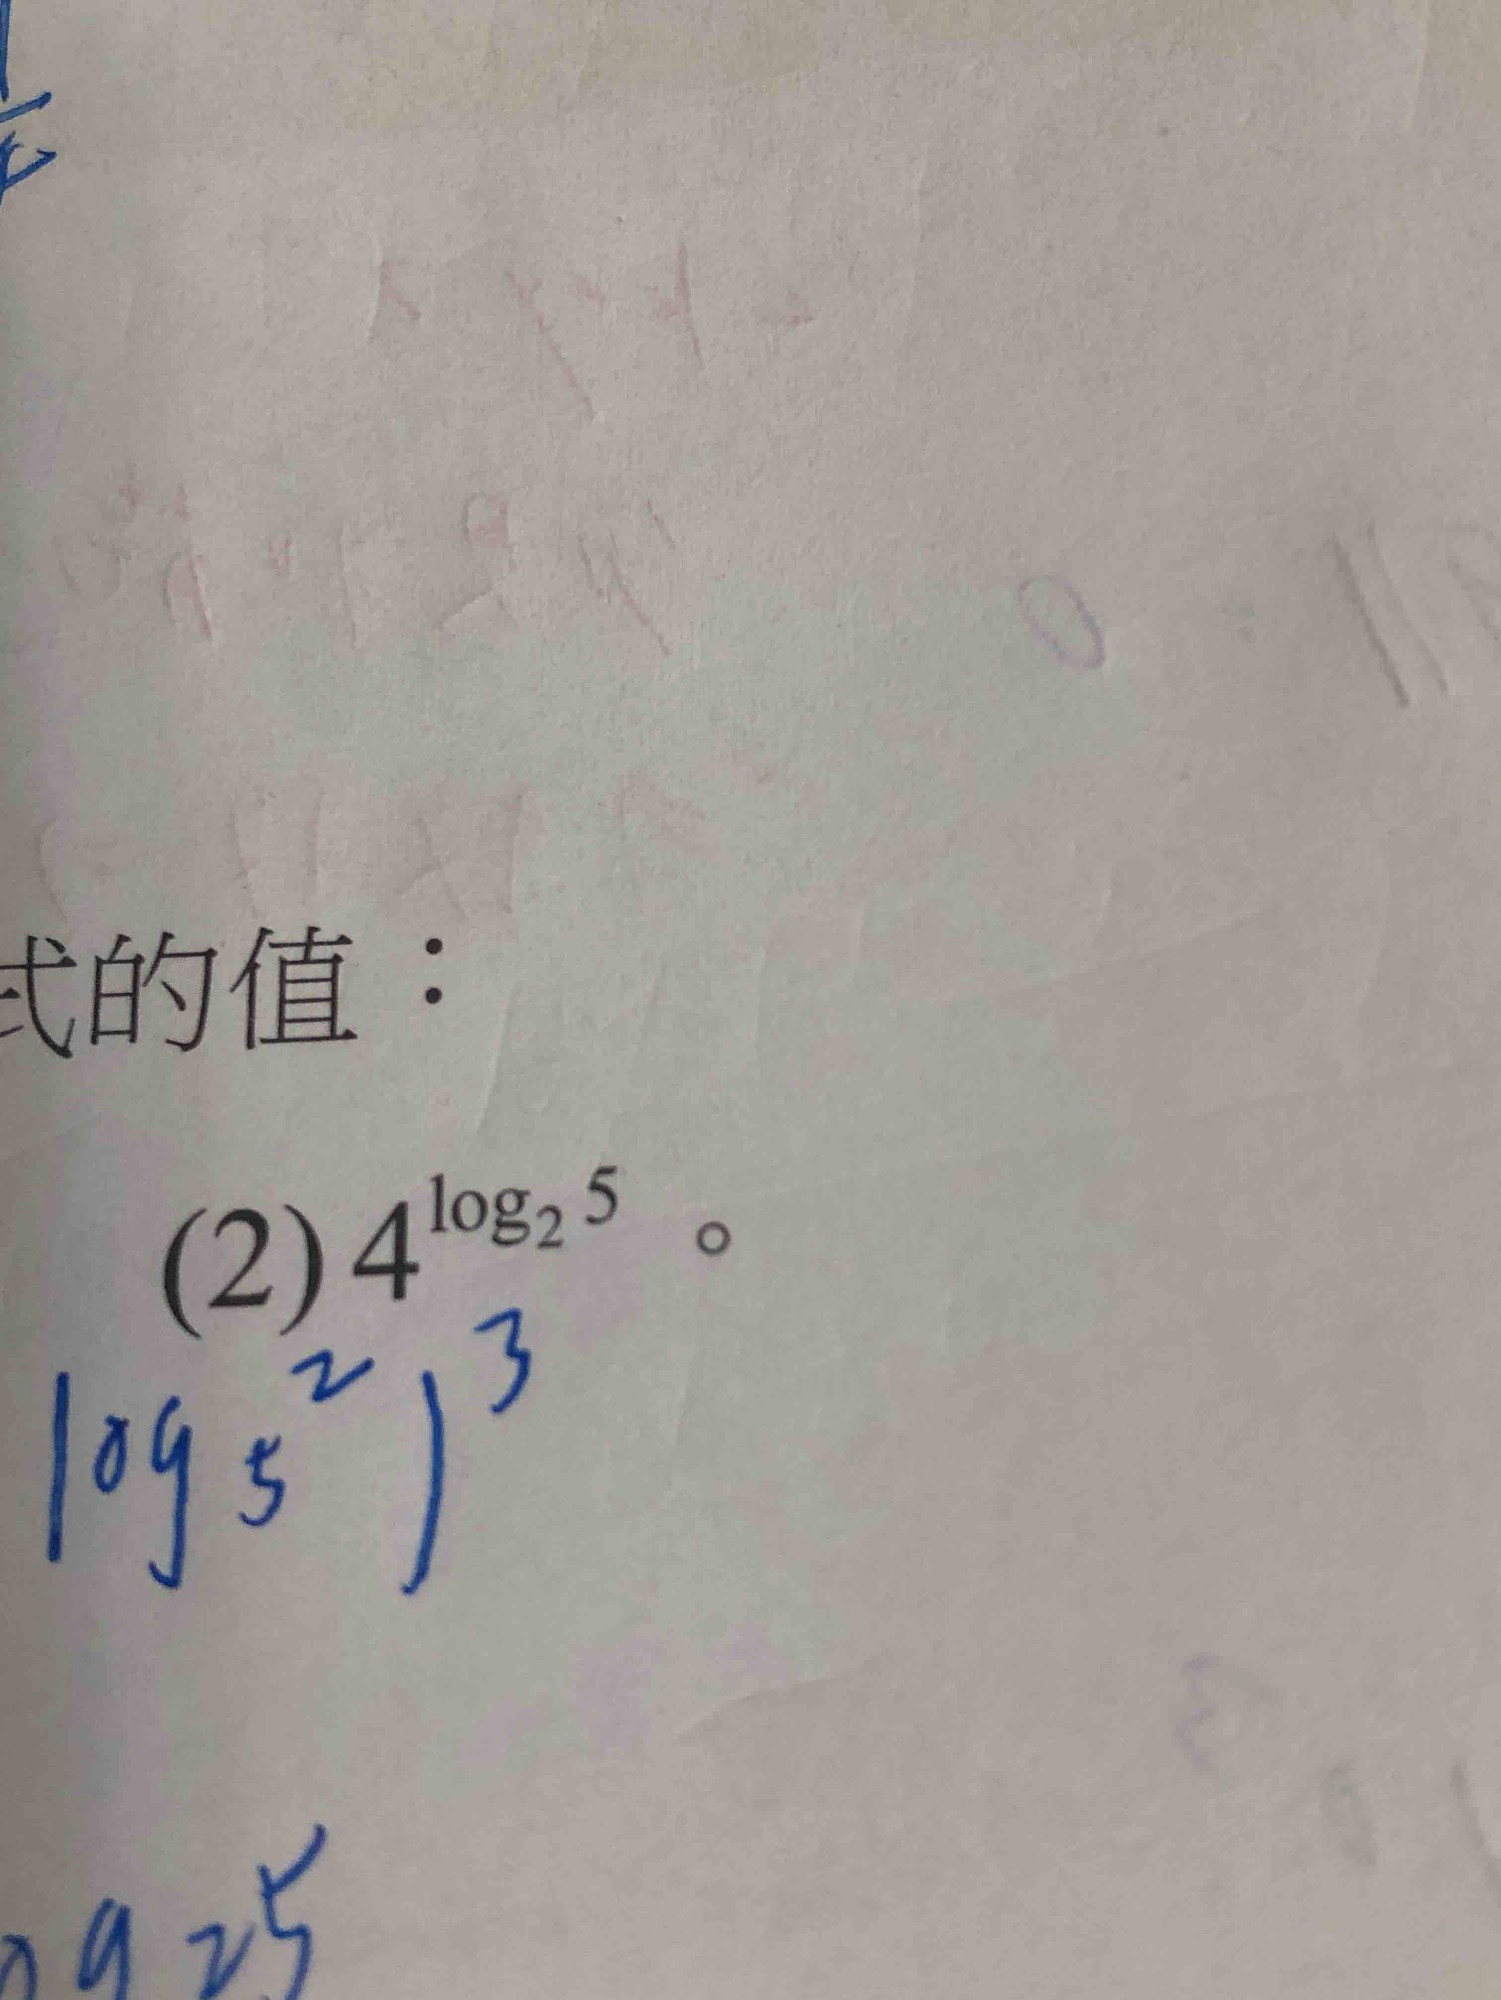 式的值：
(2) 4^{log_2 5}。
log 5^2 )^3
og 25